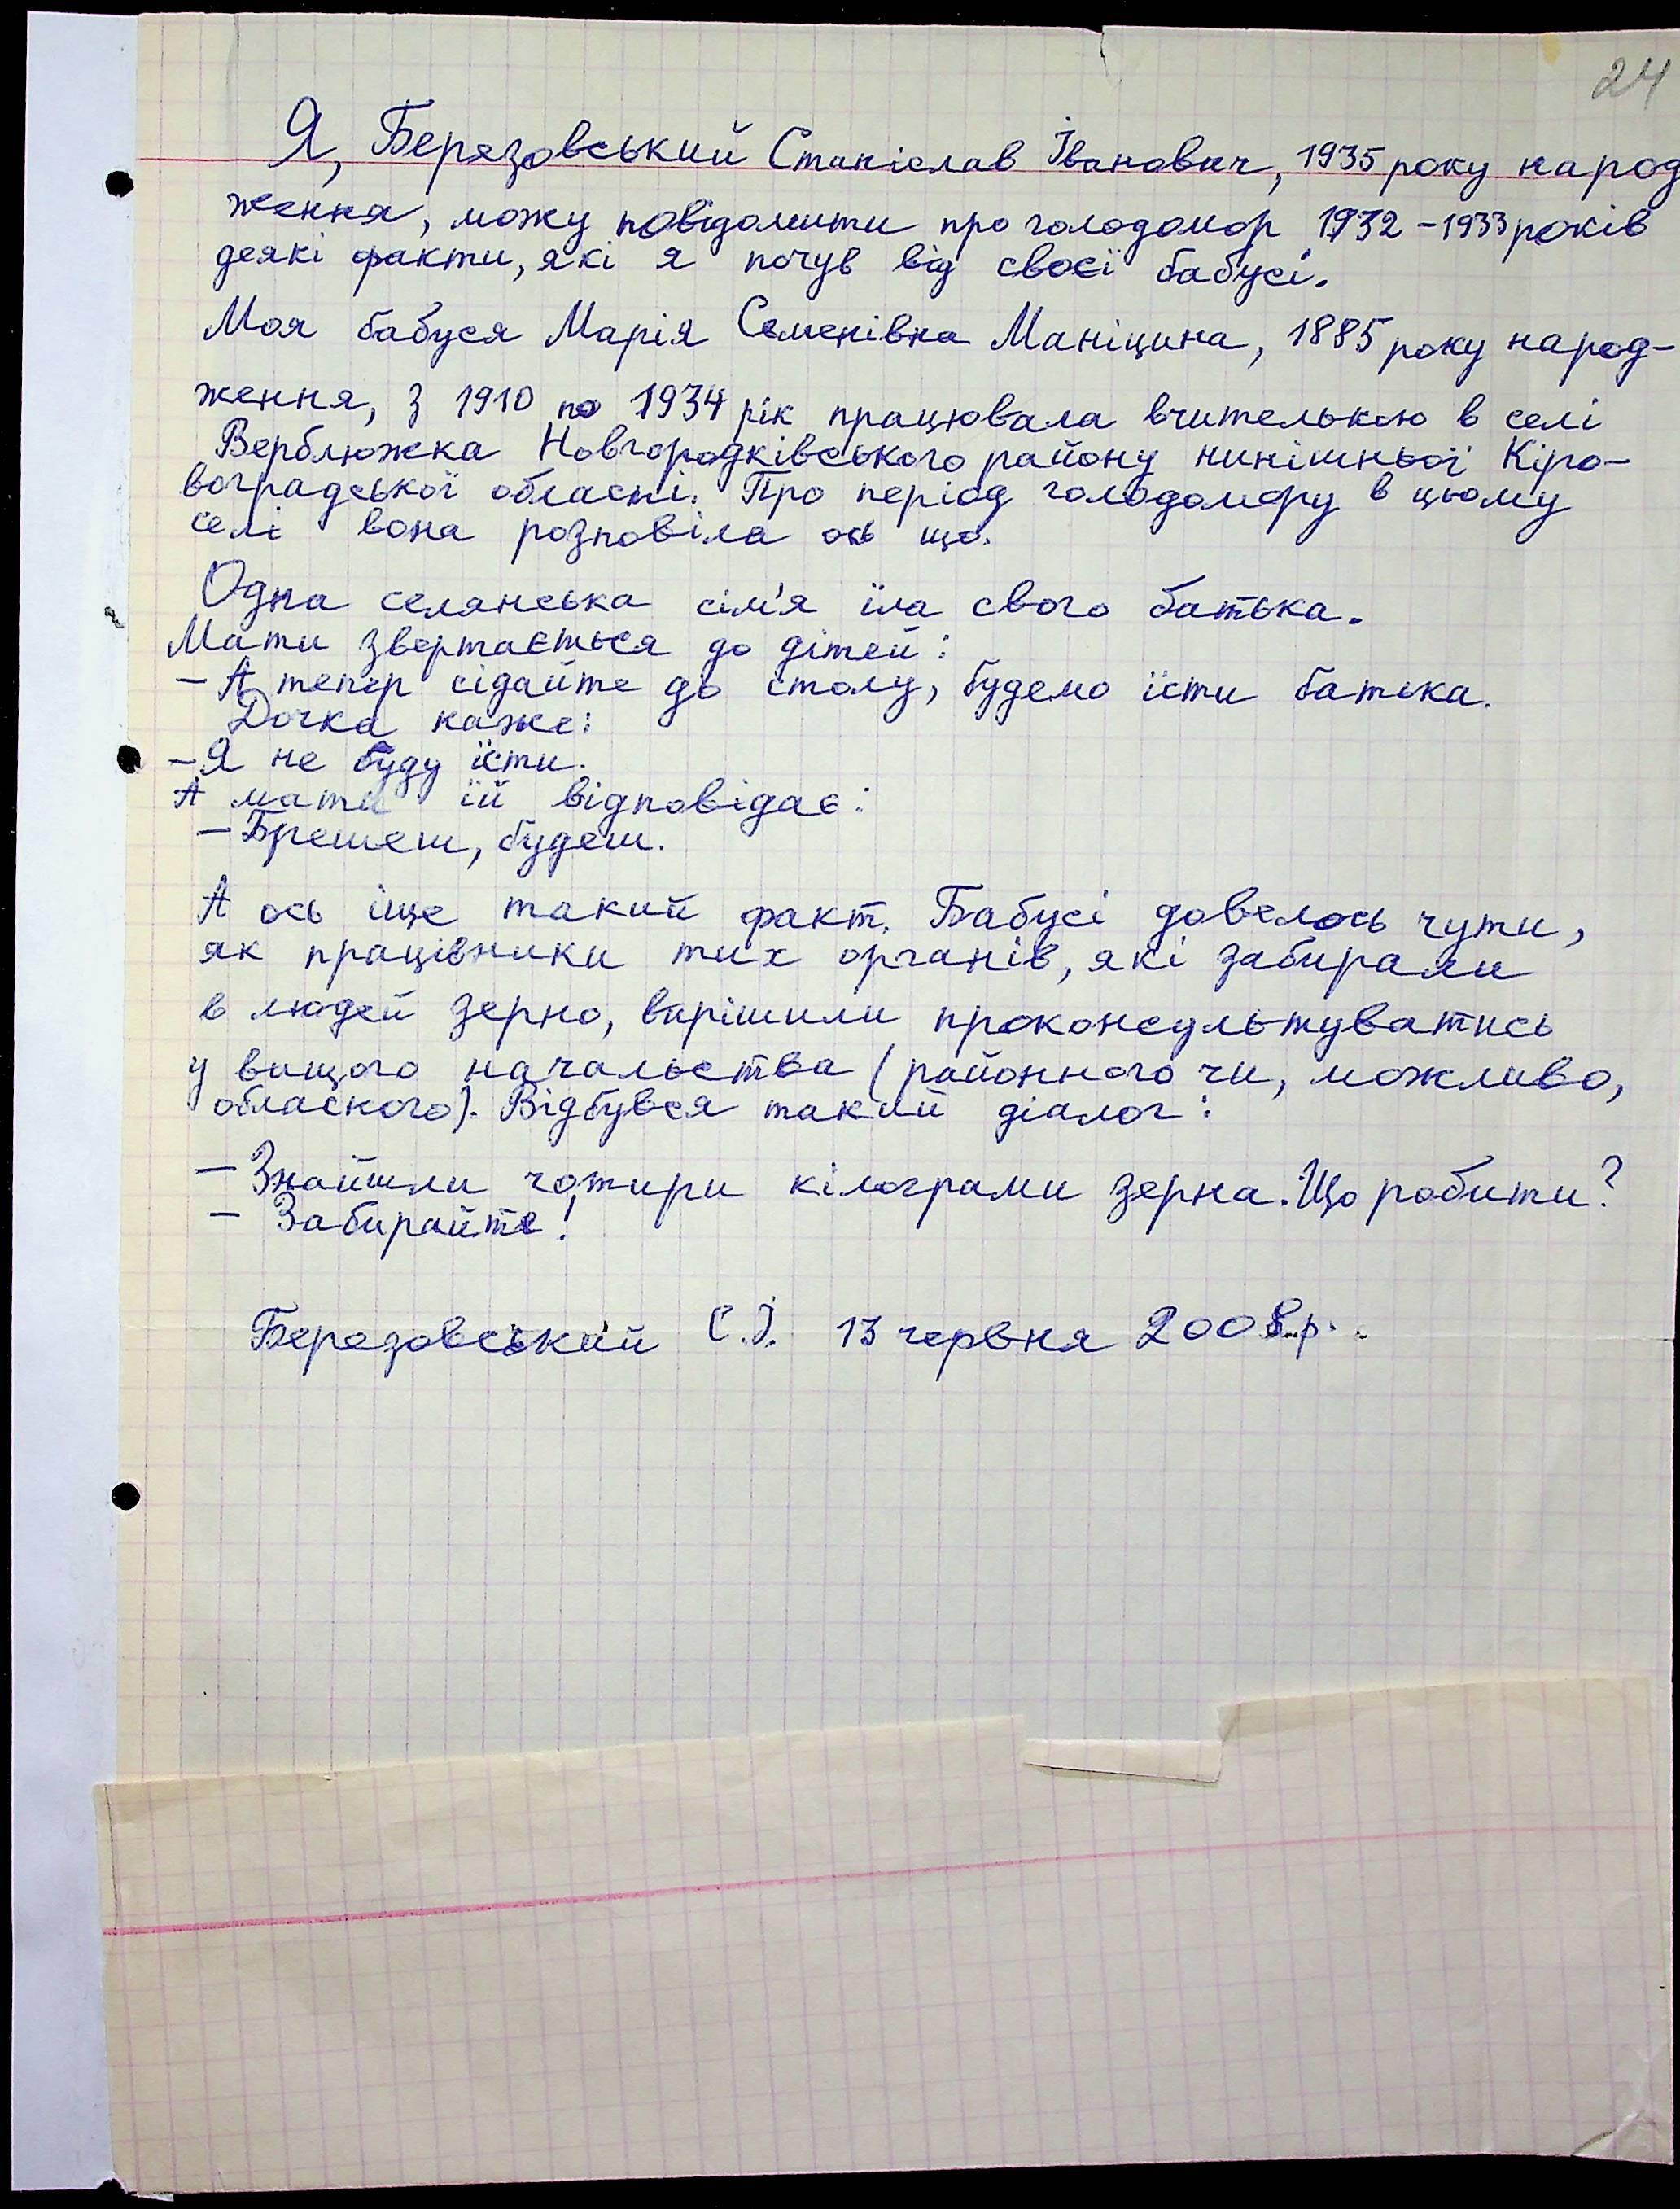 24
Я, Березовський Станіслав Іванович, 1935 року народ
ження, можу повідомити про голодомор 1932-1933 років
деякі факти, які я почув від своєї бабусі.
Моя бабуся Марія Семенівна Маніцина, 1885 року народ-
ження, з 1910 по 1934 рік працювала вчителькою в селі
Верблюжка Новгородківського району нинішньої Кіро-
воградської області. Про період голодомору в цьому
селі вона розповіла ось що.
Одна селянська сім'я їла свого батька.
Мати звертається до дітей:
- А тепер сідайте до столу, будемо їсти батька.
Дочка каже:
- Я не буду їсти.
А мати їй відповідає:
- Брешеш, будеш.
А ось іще такий факт. Бабусі довелось чути,
як працівники тих органів, які забирали
в людей зерно, вирішили проконсультуватись
у вищого начальства (районного чи, можливо,
облаского). Відбувся такий діалог:
- Знайшли чотири кілограми зерна. Що робити?
- Забирайте!
Березовський С.І. 13 червня 2008 р.